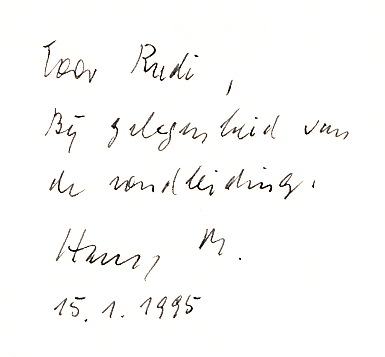 Voor Rudi,
Bij gelegenheid van
de rondleiding.
Harry M.
15.1.1995